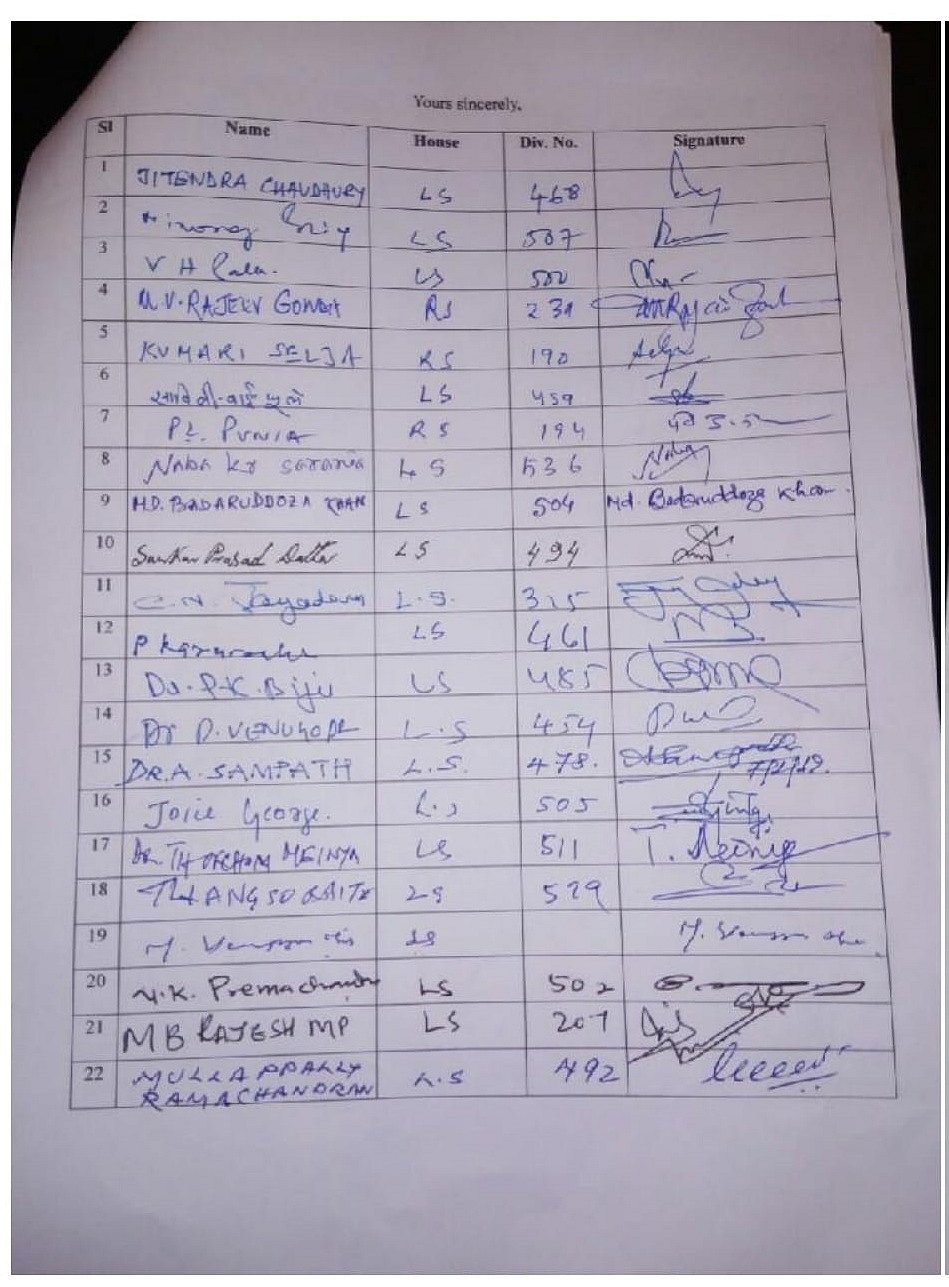 Yours sincerely,
Sl Name House Div. No. Signature
1 JITENDRA CHAUDHURY LS 468
2 LS 507
3 V H LS 500
4 M.V. RAJEEV GOWDA RS 231
5 KUMARI SELJA RS 190
6 LS 459
7 P.L. PUNIA RS 194
8 Naba Kr Sarania LS 536
9 MD. BADARUDDOZA KHAN LS 504 Md. Badaruddoza Khan
10 Sankar Prasad Datta LS 494
11 C.N. Jayadevan L.S. 315
12 P Karunakaran LS 461
13 Dr. P.K. Biju LS 485
14 Dr P. VENUGOPAL L.S 454
15 DR. A. SAMPATH L.S. 478. 7/2/19.
16 Joice George. L.S 505
17 DR. THOKCHOM MEINYA LS 511 T. Meinya
18 THANGSO BAITE LS 529
19 M. LS M.
20 N.K. Premachandran LS 502
21 MB RAJESH MP LS 207
22 MULLAPPALLY L.S 492
RAMACHANDRAN